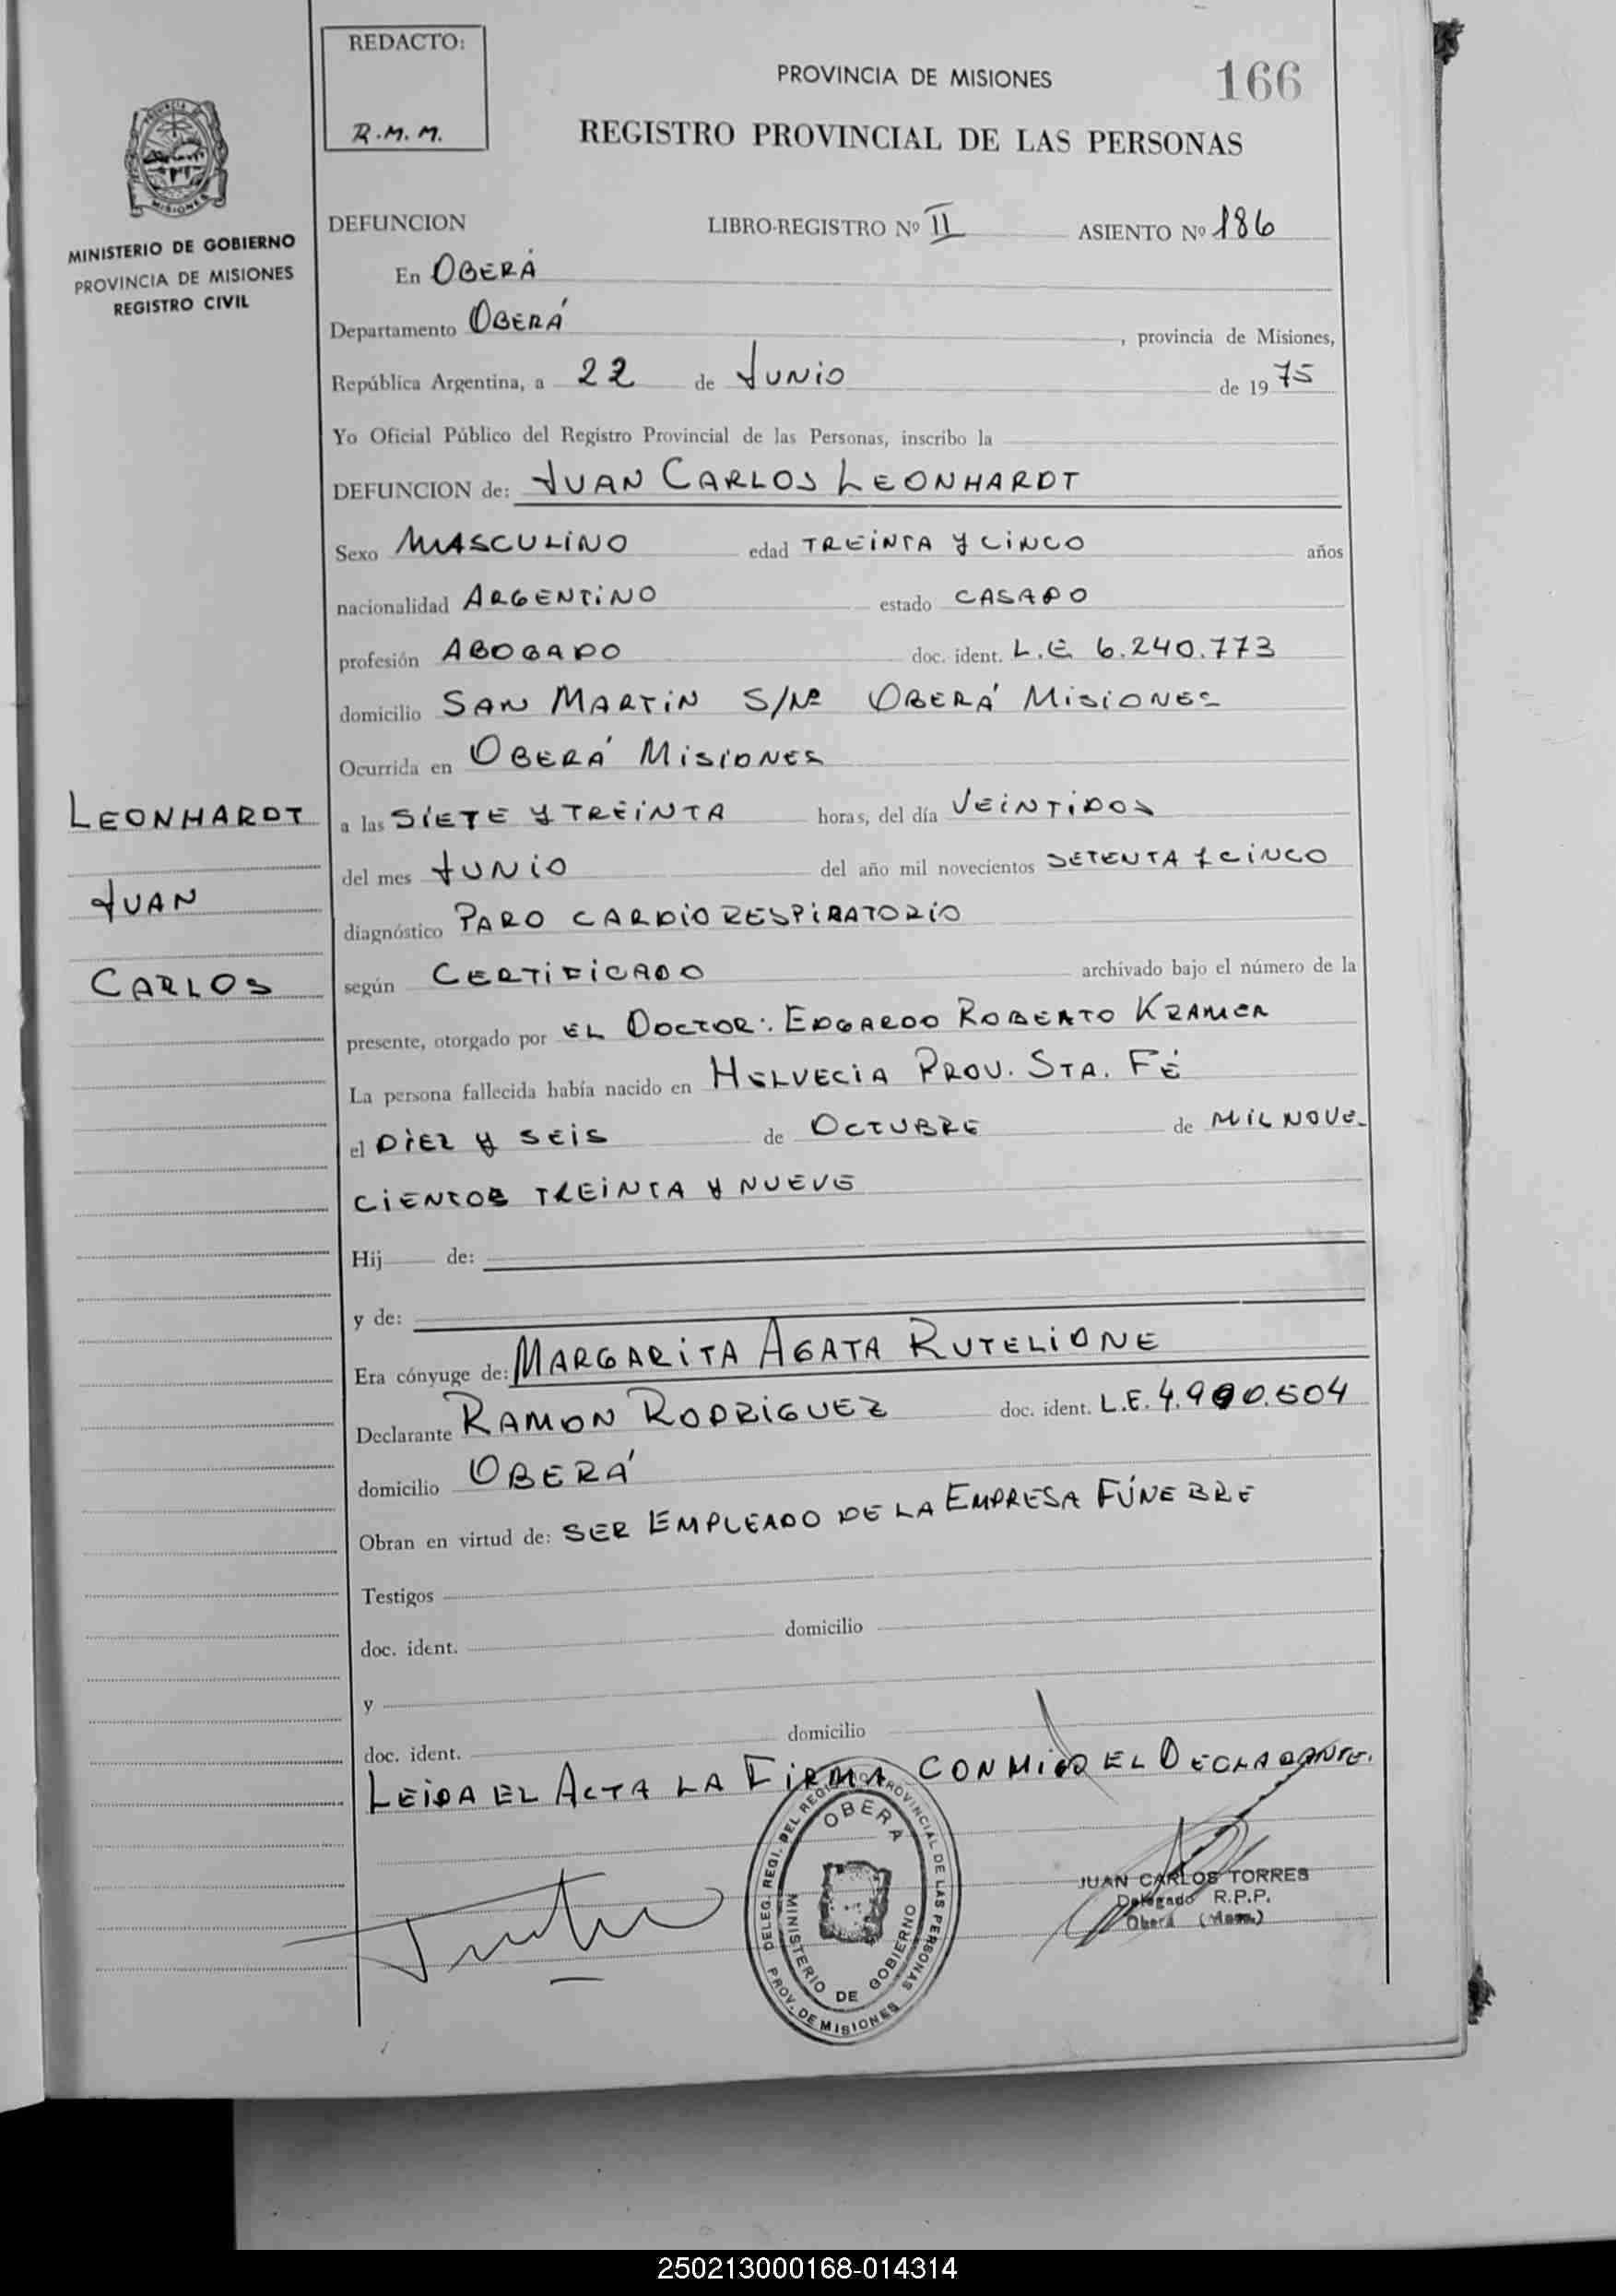 REDACTO:
R.M.M.
PROVINCIA DE MISIONES
166
REGISTRO PROVINCIAL DE LAS PERSONAS
MINISTERIO DE GOBIERNO
PROVINCIA DE MISIONES
REGISTRO CIVIL
DEFUNCION LIBRO-REGISTRO Nº II ASIENTO Nº 186
En OBERÁ
Departamento OBERÁ , provincia de Misiones,
República Argentina, a 22 de JUNIO de 1975
Yo Oficial Público del Registro Provincial de las Personas, inscribo la
DEFUNCION de: JUAN CARLOS LEONHARDT
Sexo MASCULINO edad TREINTA Y CINCO años
nacionalidad ARGENTINO estado CASADO
profesión ABOGADO doc. ident. L.E 6.240.773
domicilio SAN MARTIN S/Nº OBERÁ MISIONES
Ocurrida en OBERÁ MISIONES
LEONHARDT
JUAN
CARLOS
a las SIETE Y TREINTA horas, del día VEINTIDOS
del mes JUNIO del año mil novecientos SETENTA Y CINCO
diagnóstico PARO CARDIORESPIRATORIO
según CERTIFICADO archivado bajo el número de la
presente, otorgado por EL DOCTOR: EDGARDO ROBERTO KRAMER
La persona fallecida había nacido en HELVECIA PROV. STA. FÉ
el DIEZ Y SEIS de OCTUBRE de MIL NOVE-
CIENTOS TREINTA Y NUEVE
Hij de:
y de:
Era cónyuge de: MARGARITA AGATA RUTELIONE
Declarante RAMON RODRIGUEZ doc. ident. L.E. 4.900.504
domicilio OBERÁ
Obran en virtud de: SER EMPLEADO DE LA EMPRESA FÚNEBRE
Testigos
doc. ident. domicilio
y
doc. ident. domicilio
LEIDA EL ACTA LA FIRMA CONMIGO EL DECLARANTE.
DELEG. REGI. DEL REGI. PROVINCIAL DE LAS PERSONAS
PROV. DE MISIONES
OBERA
MINISTERIO DE GOBIERNO
JUAN CARLOS TORRES
Delegado R.P.P.
Oberá (Mnes.)
250213000168-014314